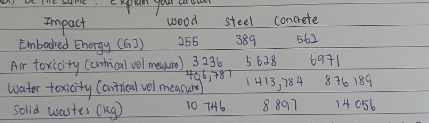 be the same? Explain your answer
Impact wood steel Concrete
Embodied Energy (GJ) 255 389 562
Air toxicity (critical vol measure) 3 236 5 628 6971
Water toxicity (critical vol measure) 406,787 1 413,784 876 189
Solid wastes (kg) 10 746 8 897 14 056